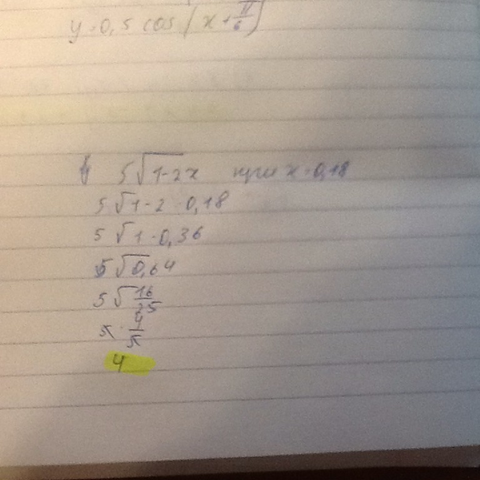 y=0,5 cos(x+π/6)
5√1-2x при x=0,18
5√1-2·0,18
5√1-0,36
5√0,64
5√16/25
5·4/5
4